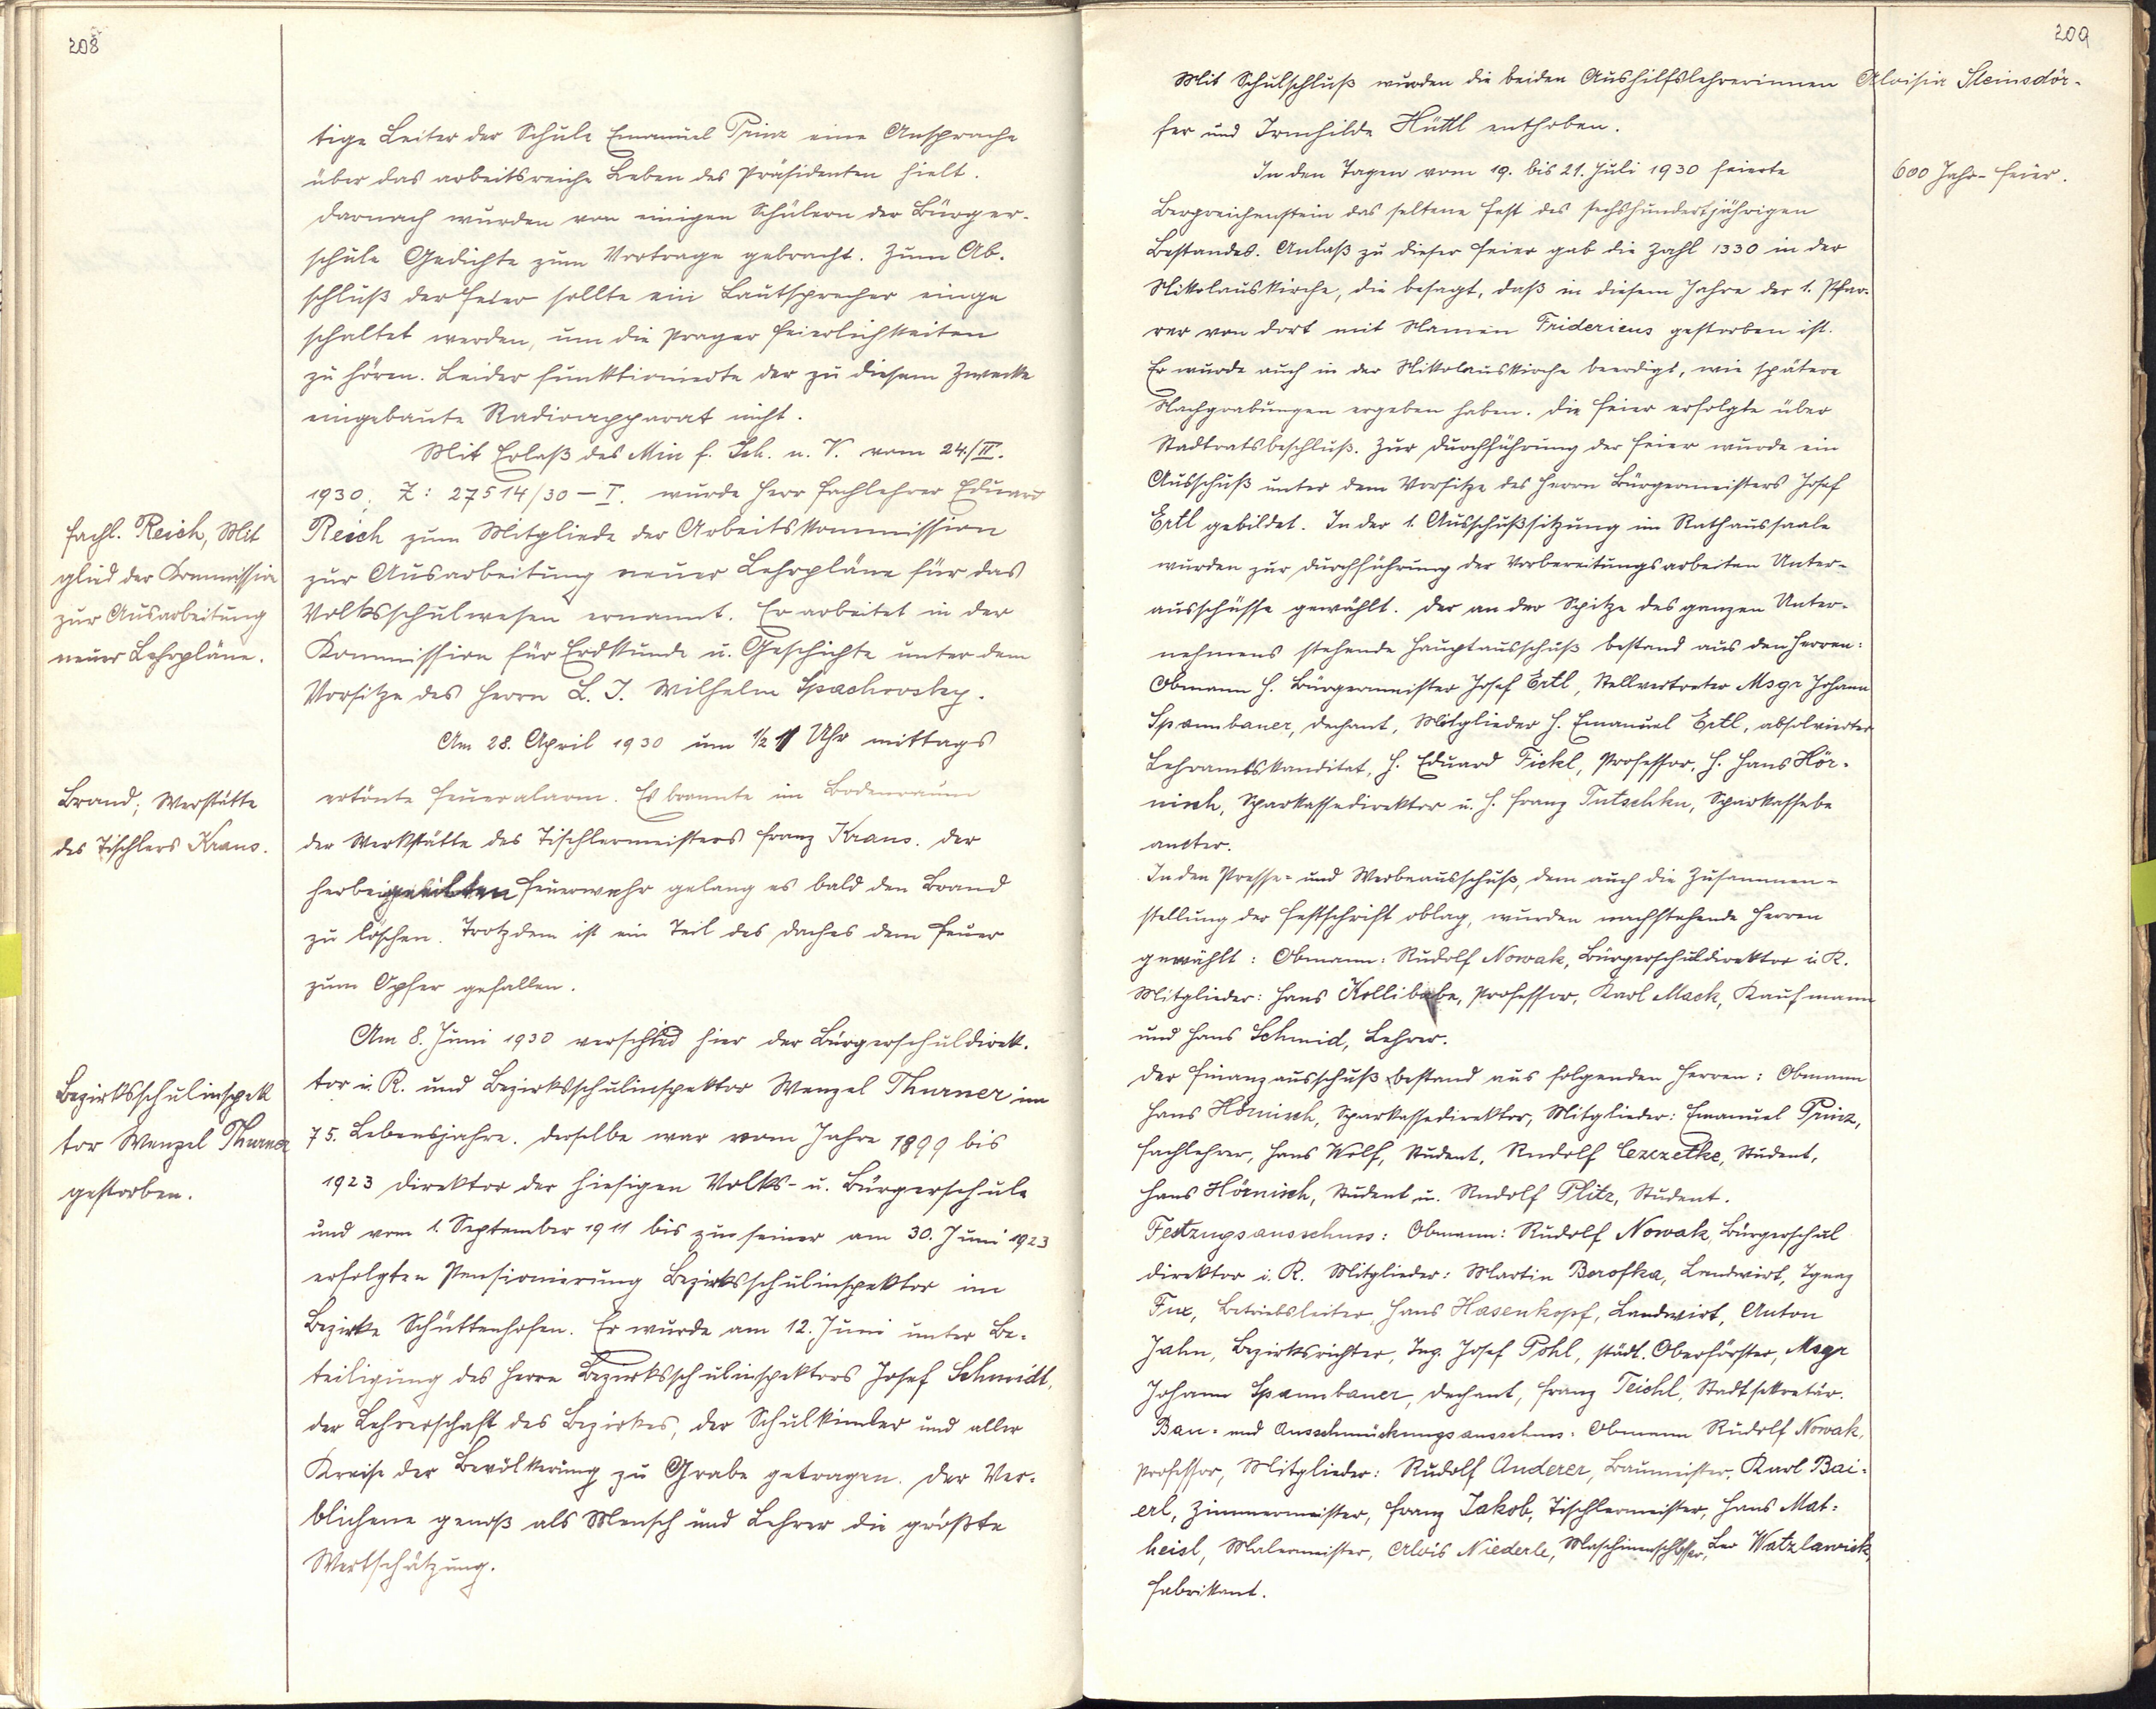 208
tige Leiter der Schule Emanuel Prinz eine Ansprache
über das arbeitsreiche Leben des Präsidenten hielt.
Darnach wurden von einigen Schülern der Bürger-
schule Gedichte zum Vortrage gebracht. Zum Ab-
schluß der Feier sollte ein Lautsprecher einge
schaltet werden, um die Prager Feierlichkeiten
zu hören. Leider funktionierte der zu diesem Zwecke
eingebaute Radioapparat nicht.
Mit Erlaß des Min f. Sch. u. V. vom 24./III.
1930, Z: 27514/30 – I. wurde Herr Fachlehrer Eduard
Fachl. Reich, Mit
glied der Kommission
zur Ausarbeitung
neuer Lehrpläne.
Reich zum Mitgliede der Arbeitskommission
zur Ausarbeitung neuer Lehrpläne für das
Volksschulwesen ernannt. Er arbeitet in der
Kommission für Erdkunde u. Geschichte unter dem
Vorsitze des Herrn L. I. Wilhelm Spachovsky.
Am 28. April 1930 um ½ 11 Uhr mittags
Brand; Werstätte
des Tischlers Kraus.
ertönte Feueralarm. Es brannte im Bodenraum
der Werkstätte des Tischlermeisters Franz Kraus. Der
herbeigeeilten Feuerwehr gelang es bald den Brand
zu löschen. Trotzdem ist ein Teil des Daches dem Feuer
zum Opfer gefallen.
Am 8. Juni 1930 verschied hier der Bürgerschuldirek-
Bezirksschulinspek
tor Wenzel Thurner
gestorben.
tor i. R. und Bezirksschulinspektor Wenzel Thurner im
75. Lebensjahre. Derselbe war vom Jahre 1899 bis
1923 Direktor der hiesigen Volks- u. Bürgerschule
und vom 1. September 1911 bis zu seiner am 30. Juni 1923
erfolgten Pensionierung Bezirksschulinspektor im
Bezirke Schüttenhofen. Er wurde am 12. Juni unter Be-
teiligung des Herrn Bezirksschulinspektors Josef Schmidt,
der Lehrerschaft des Bezirkes, der Schulkinder und aller
Kreise der Bevölkerung zu Grabe getragen. Der Ver-
blichene genoß als Mensch und Lehrer die größte
Wertschätzung.
209
Mit Schulschluß wurden die beiden Aushilfslehrerinnen Aloisia Steinsdör-
fer und Irmhilde Hüttl enthoben.
In den Tagen vom 19. bis 21. Juli 1930 feierte
600 Jahr-Feier.
Bergreichenstein das seltene Fest des sechshundertjährigen
Bestandes. Anlaß zu dieser Feier gab die Zahl 1330 in der
Nikolauskirche, die besagt, daß in diesem Jahre der 1. Pfar-
rer von dort mit Namen Fridericus gestorben ist.
Er wurde auch in der Nikolauskirche beerdigt, wie spätere
Nachgrabungen ergeben haben. Die Feier erfolgte über
Stadtratsbeschluß. Zur Durchführung der Feier wurde ein
Ausschuß unter dem Vorsitze des Herrn Bürgermeisters Josef
Ertl gebildet. In der 1. Ausschußsitzung im Rathaussaale
wurden zur Durchführung der Vorbereitungsarbeiten Unter-
ausschüsse gewählt. Der an der Spitze des ganzen Unter-
nehmens stehende Hauptausschuß bestand aus den Herren:
Obmann H. Bürgermeister Josef Ertl, Stellvertreter Msgr Johann
Spannbauer, Dechant, Mitglieder H. Emanuel Ertl, absolvierter
Lehramtskanditat, H. Eduard Fickl, Professor, H. Hans Hör-
nisch, Sparkassedirektor u. H. Franz Tutschku, Sparkassebe
amter.
In den Presse- und Werbeausschuß, dem auch die Zusammen-
stellung der Festschrift oblag, wurden nachstehende Herren
gewählt: Obmann: Rudolf Nowak, Bürgerschuldirektor i. R.
Mitglieder: Hans Kollibabe, Professor, Karl Mack, Kaufmann
und Hans Schmid, Lehrer.
Der Finanzausschuß bestand aus folgenden Herren: Obmann
Hans Hörnisch, Sparkassedirektor, Mitglieder: Emanuel Prinz,
Fachlehrer, Hans Wolf, Student, Rudolf Czezetke, Student,
Hans Hörnisch, Student u. Rudolf Plitz, Student.
Festzugsausschuss: Obmann: Rudolf Nowak, Bürgerschul
direktor i. R. Mitglieder: Martin Berofka, Landwirt, Ignaz
Fux, Betriebsleiter, Hans Hasenkopf, Landwirt, Anton
Jahn, Bezirksrichter, Ing. Josef Pohl, städt. Oberförster, Msgr
Johann Spannbauer, Dechant, Franz Teichl, Stadtsekretär.
Bau- und Ausschmückungsausschuss: Obmann Rudolf Nowak,
Professor, Mitglieder: Rudolf Anderer, Baumeister, Karl Bai-
erl, Zimmermeister, Franz Jakob, Tischlermeister, Hans Mat-
heisl, Malermeister, Alois Niederle, Maschinenschlosser, Leo Watzlawick,
Fabrikant.